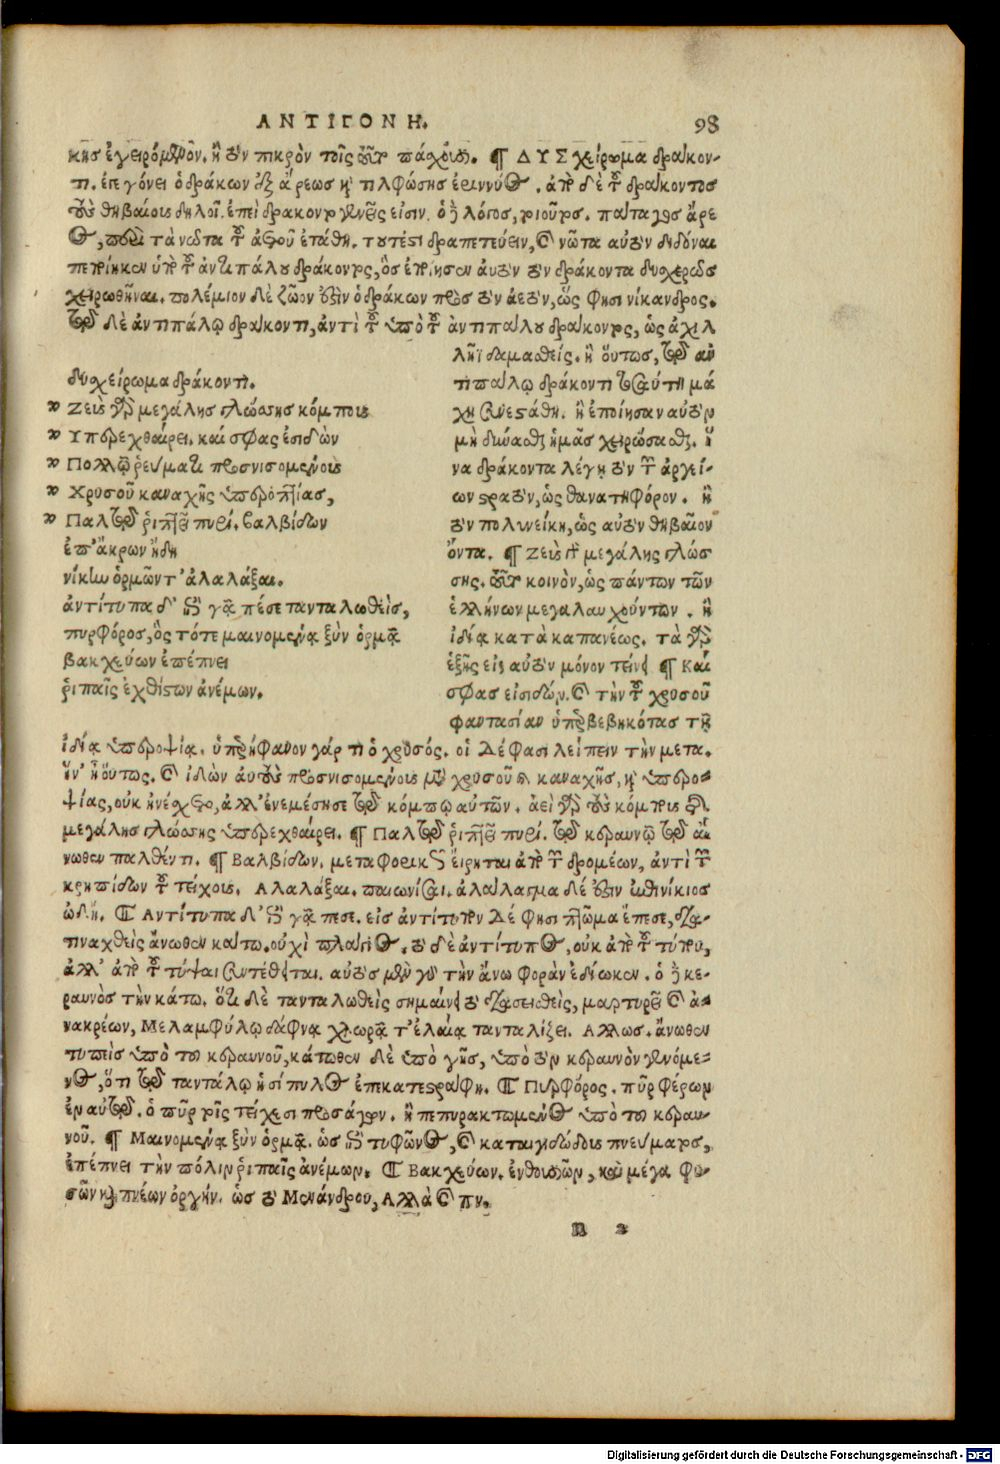 ΑΝΤΙΓΟΝΗ. 98
κης ἐγειρόμενον. ἢ τὸν πικρὸν τοῖς πάχουσι. ¶ ΔΥΣχείρωμα δράκον-
τι. ἐπεγόνει ὁ δράκων ἐξ ἄρεως καὶ τιλφώσης ἐριννύος. ἀπὸ δὲ τοῦ δράκοντος
τοὺς θηβαίους δηλοῖ. ἐπεὶ δρακοντογενεῖς εἰσιν. ὁ δὲ λόγος, τοιοῦτος. πάταγος ἄρε
ος, περὶ τὰ νῶτα τοῦ ἀετοῦ ἐτάθη. τουτέστι δραπετεύειν, καὶ νῶτα αὐτὸν διδόναι
πεποίηκεν ὑπὸ τοῦ ἀντιπάλου δράκοντος, ὃς ἐποίησεν αὐτὸν τὸν δράκοντα δυσχερῶς
χειρωθῆναι. πολέμιον δὲ ζῶον ἐστὶν ὁ δράκων πρὸς τὸν ἀετὸν, ὥς φησι νίκανδρος.
τῷ δὲ ἀντιπάλῳ δράκοντι, ἀντὶ τοῦ ὑπὸ τοῦ ἀντιπάλου δράκοντος, ὡς ἀχιλ
λῆϊ δαμασθείς. ἢ οὕτως, τῷ ἀν
δυσχείρωμα δράκοντι.
Ζεὺς γὰρ μεγάλης γλώσσης κόμπους
Υπερεχθαίρει. καί σφας ἐσιδὼν
Πολλῷ ῥεύματι προσνισομένους
Χρυσοῦ καναχῆς ὑπεροπτίας,
Παλτῷ ῥιπτεῖ πυρί. βαλβίδων
ἐπ' ἄκρων ἤδη
νίκην ὁρμῶντ' ἀλαλάξαι.
ἀντίτυπα δ' ἐπὶ γᾷ πέσε τανταλωθεὶς,
πυρφόρος, ὃς τότε μαινομένᾳ ξὺν ὁρμᾷ
βακχεύων ἐπέπνει
ῥιπαῖς ἐχθίστων ἀνέμων.
τιπάλῳ δράκοντι ταύτη μά
χη συνεστάθη. ἢ ἐποίησαν αὐτὸν
μὴ δύνασθαι ἡμᾶς χειρώσασθαι. ἵ
να δράκοντα λέγῃ τὸν τῶν ἀργεί-
ων στρατὸν, ὡς θανατηφόρον. ἢ
τὸν πολυνείκη, ὡς αὐτὸν θηβαῖον
ὄντα. ¶ Ζεὺς γὰρ μεγάλης γλώσ
σης. κοινὸν, ὡς πάντων τῶν
ἑλλήνων μεγαλαυχούντων. ἢ
ἰδίᾳ κατὰ καπανέως. τὰ γὰρ
ἑξῆς εἰς αὐτὸν μόνον τείνει. ¶ Καί
σφας εἰσιδών. καὶ τὴν τοῦ χρυσοῦ
φαντασίαν ὑπερβεβηκότας τῇ
ἰδίᾳ ὑπεροψίᾳ. ὑπερήφανον γάρ τι ὁ χρυσός. οἱ δέ φασι λείπειν τὴν μετα.
ἵν' ᾖ οὕτως. καὶ ἰδὼν αὐτοὺς προσνισομένους μετὰ χρυσοῦ καναχῆς, καὶ ὑπερο-
ψίας, οὐκ ἠνέσχετο, ἀλλ' ἐνεμέσησε τῷ κόμπῳ αὐτῶν. ἀεὶ γὰρ τοὺς κόμπους τῆς
μεγάλης γλώσσης ὑπερεχθαίρει. ¶ Παλτῷ ῥιπτεῖ πυρί. τῷ κεραυνῷ τῷ ἄ-
νωθεν παλθέντι. ¶ Βαλβίδων. μεταφορικῶς εἴρηται ἀπὸ τῶν δρομέων, ἀντὶ τῶν
κρηπίδων τοῦ τείχους. Αλαλάξαι. παιωνίσαι. ἀλάλαγμα δέ ἐστιν ἐπινίκιος
ὠδή. ¶ Αντίτυπα δ' ἐπὶ γᾷ πέσε. εἰς ἀντίτυπον δέ φησι πτῶμα ἔπεσε, δια-
τιναχθεὶς ἄνωθεν κάτω. οὐχὶ πλάγιος. τὸ δὲ ἀντίτυπος, οὐκ ἀπὸ τοῦ τύπου,
ἀλλ' ἀπὸ τοῦ τύψαι συντέθειται. αὐτὸς μὲν γὰρ τὴν ἄνω φορὰν ἐδίωκεν. ὁ δὲ κε-
ραυνὸς τὴν κάτω. ὅτι δὲ τανταλωθεὶς σημαίνει τὸ διασεισθεὶς, μαρτυρεῖ καὶ ἀ-
νακρέων, Μελαμφύλῳ δάφνᾳ χλωρᾷ τ' ἐλαίᾳ τανταλίζει. Αλλως. ἄνωθεν
τυπεὶς ὑπὸ τοῦ κεραυνοῦ, κάτωθεν δὲ ὑπὸ γῆς, ὑπὸ τὸν κεραυνὸν γενόμε-
νος, ὅτι τῷ ταντάλῳ ἡ σίπυλος ἐπικατεστράφη. ¶ Πυρφόρος. πῦρ φέρων
ἐν αὐτῷ. ὁ πῦρ τοῖς τείχεσι προσάγων. ἢ πεπυρακτωμένος ὑπὸ τοῦ κεραυ-
νοῦ. ¶ Μαινομένᾳ ξὺν ὁρμᾷ. ὡς ὁ τυφῶνος, καὶ καταιγιδώδους πνεύματος,
ἐπέπνει τὴν πόλιν ῥιπαῖς ἀνέμων. ¶ Βακχεύων. ἐνθουσιῶν, καὶ μέγα φυ-
σῶν καὶ πνέων ὀργήν. ὡς τὸ Μενάνδρου, Αλλὰ καὶ πν.
n 2
Digitalisierung gefördert durch die Deutsche Forschungsgemeinschaft - DFG